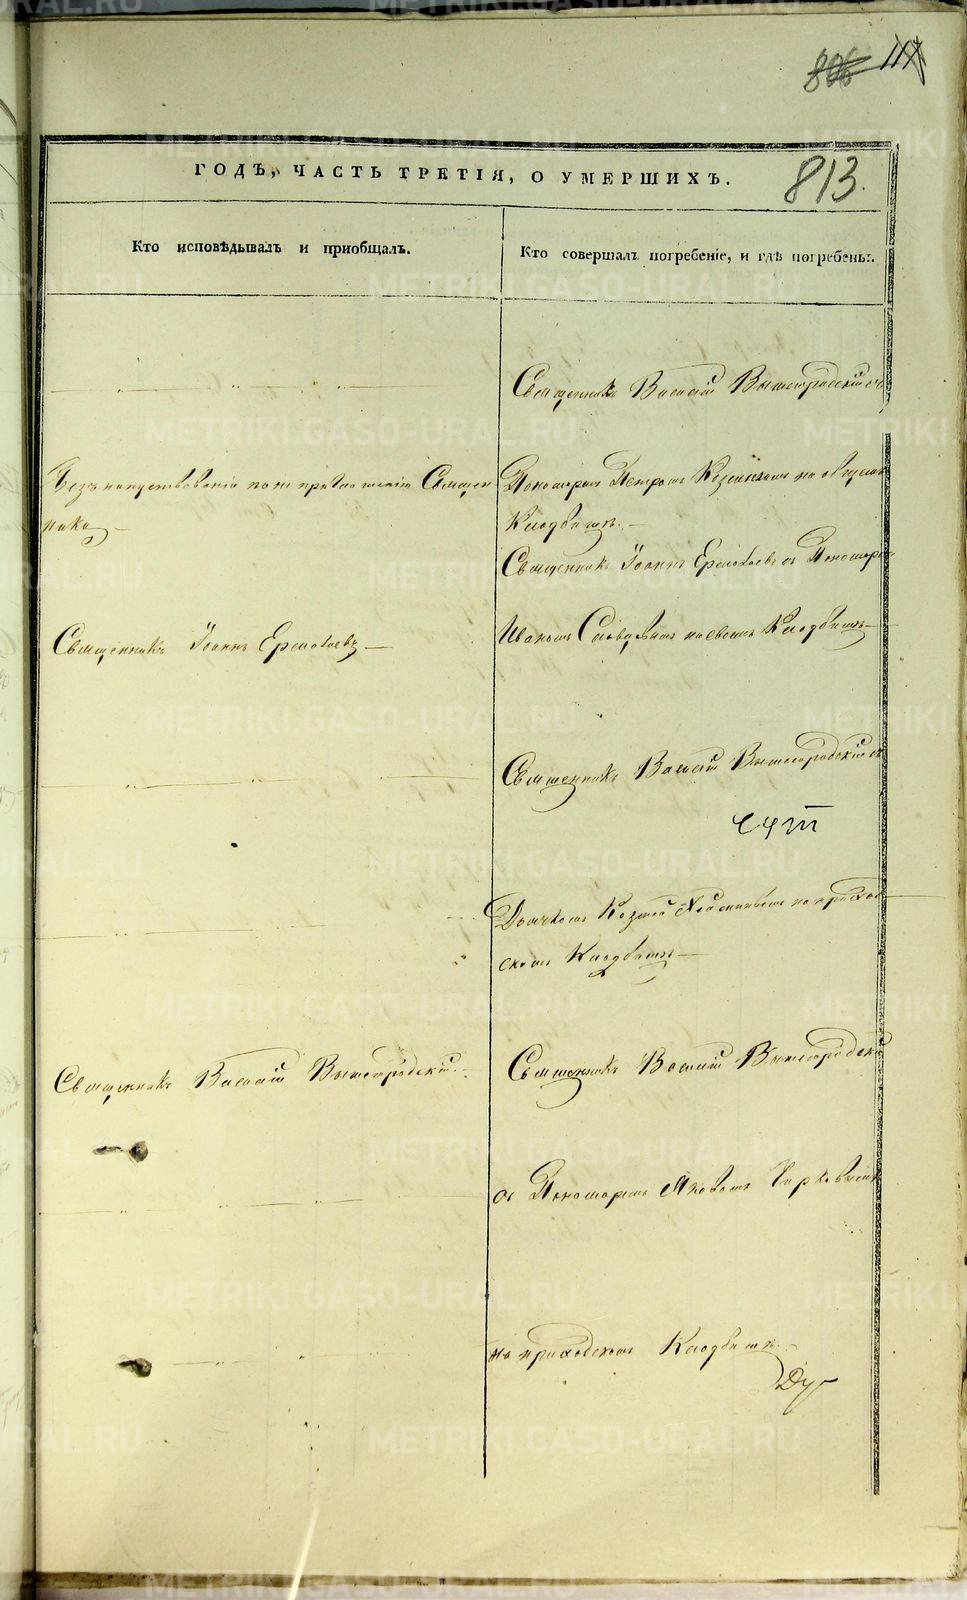 806 117
813.
ГОДЪ, ЧАСТЬ ТРЕТІЯ, О УМЕРШИХЪ.
Кто исповѣдывалъ и приобщалъ.
Кто совершалъ погребеніе, и гдѣ погребены.
Священникъ Василій Вышегородскій съ
Безъ напутствованія по не приглашенію Священ
ника
Пономаремъ Петромъ на общемъ
Кладбищѣ.
Священникъ Іоаннъ Ермолаевъ съ Пономаремъ
Священникъ Іоаннъ Ермолаевъ
Иваномъ на своемъ Кладбищѣ
Священникъ Василій Вышегородскій съ
Дьячкомъ Козмой на приход
скомъ Кладбищѣ
Священникъ Василій Вышегородскій
Священникъ Василій Вышегородскій
съ Пономаремъ Яковомъ
на приходскомъ Кладбищѣ.
METRIKI.GASO-URAL.RU